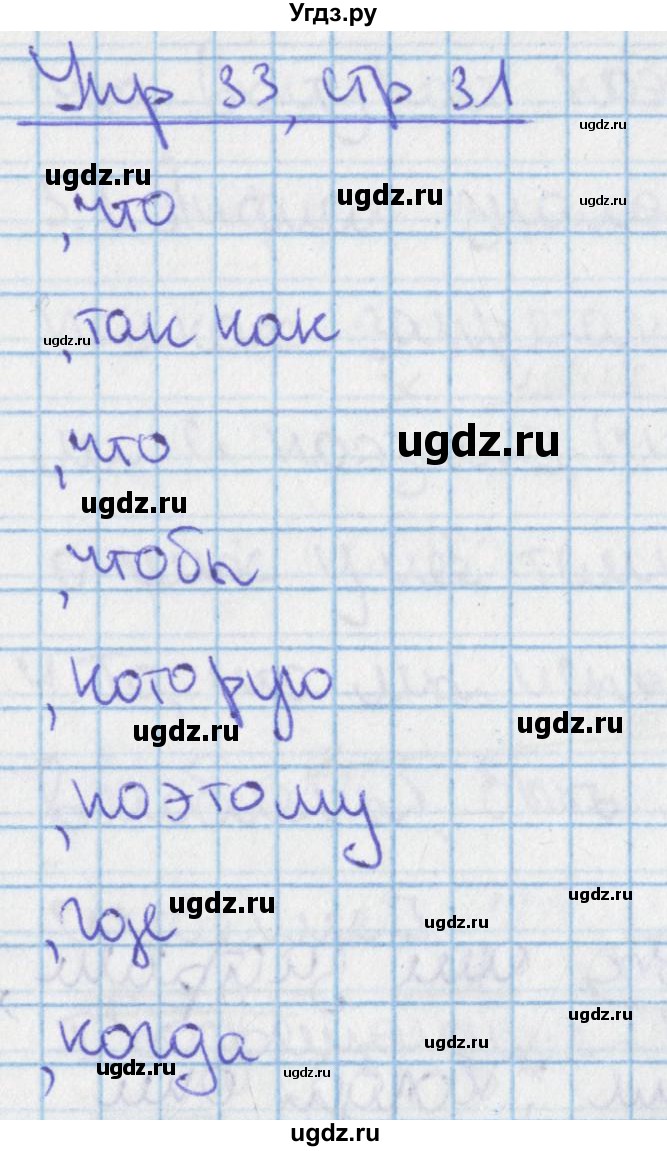 Угдз.ру
Упр 33, стр 31
ugdz.ru
ugdz.ru
ugdz.ru
ugdz.ru
, что
, так как
ugdz.ru
, что
ugdz.ru
ugdz.ru
, чтобы
, которую
ugdz.ru
ugdz.ru
, поэтому
, где
ugdz.ru
ugdz.ru
ugdz.ru
, когда
ugdz.ru
ugdz.ru
ugdz.ru
ugdz.ru
ugdz.ru